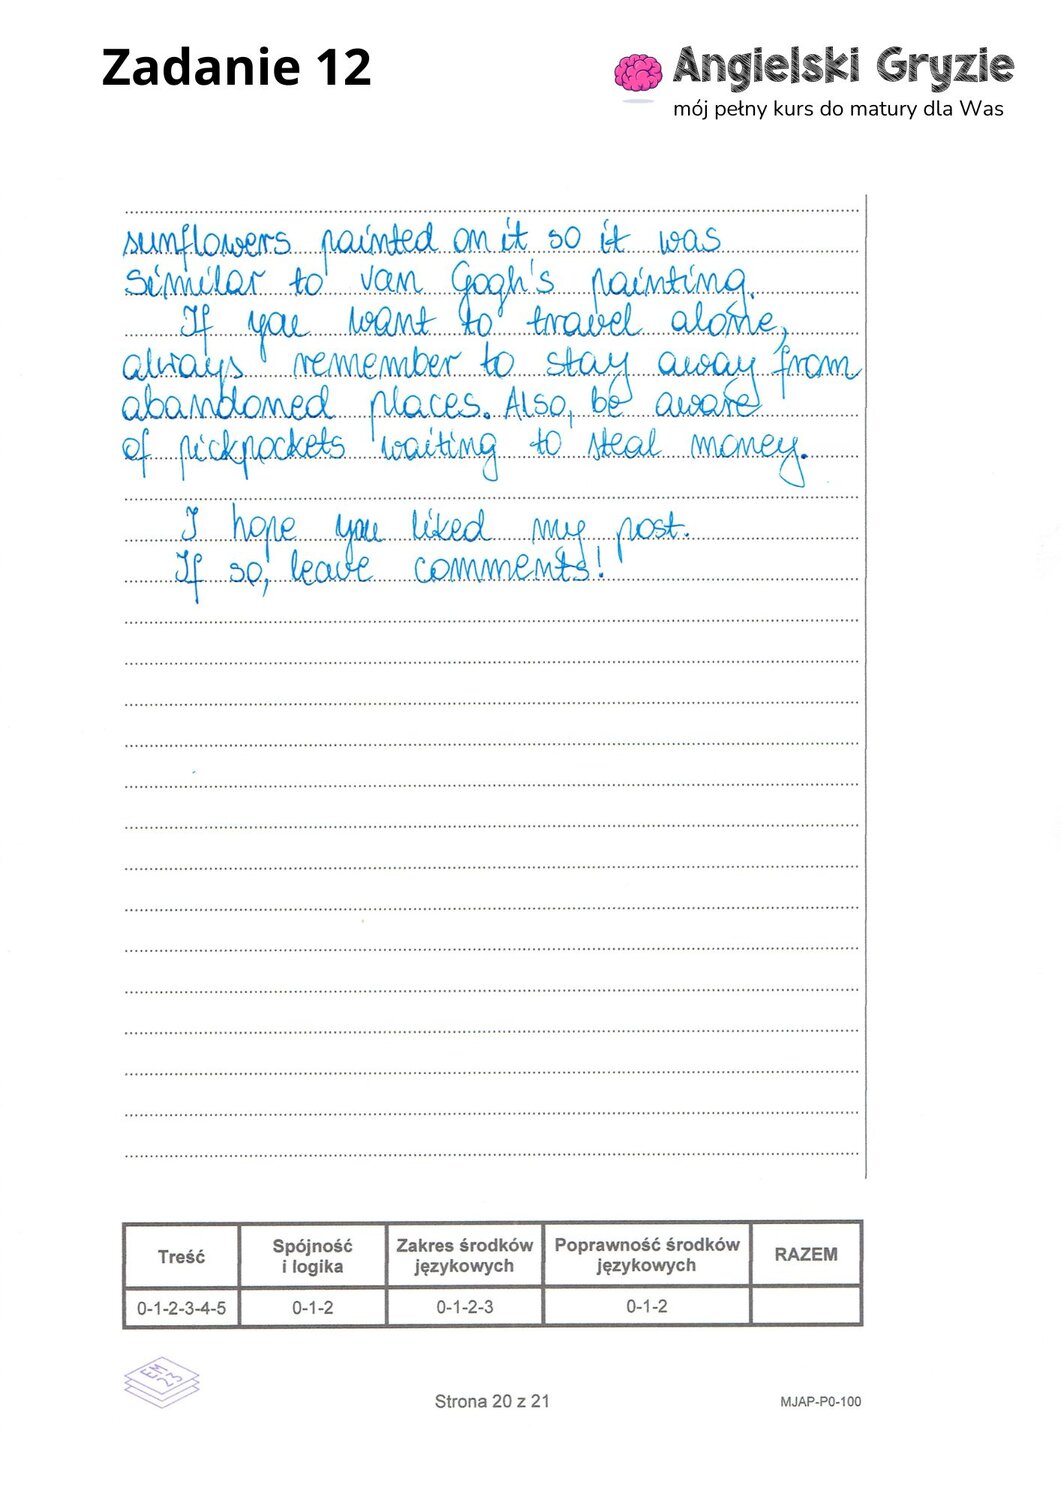 Zadanie 12
Angielski Gryzie
mój pełny kurs do matury dla Was
sunflowers painted on it so it was
similar to van Gogh's painting.
If you want to travel alone,
always remember to stay away from
abandoned places. Also, be aware
of pickpockets waiting to steal money.
I hope you liked my post.
If so, leave comments!
Treść
Spójność
i logika
Zakres środków
językowych
Poprawność środków
językowych
RAZEM
0-1-2-3-4-5
0-1-2
0-1-2-3
0-1-2
EM
23
Strona 20 z 21
MJAP-P0-100